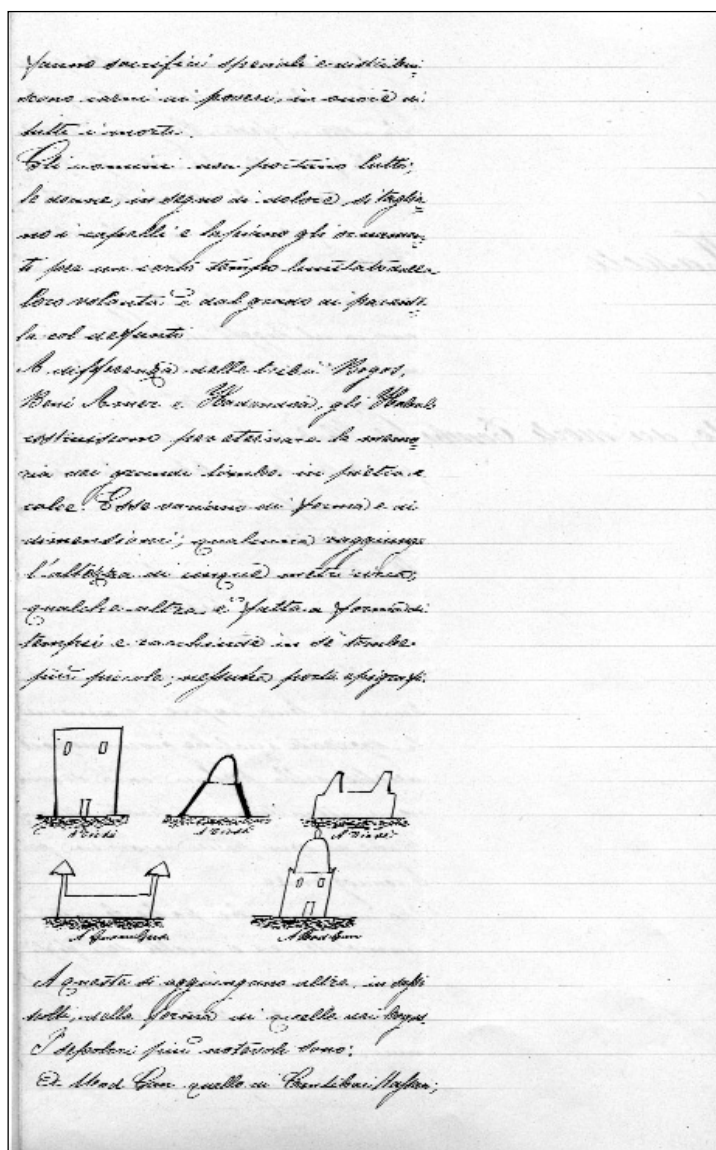 fanno sacrifici speciali e distribui-
scono carni ai poveri, in onore di
tutti i morti.
Gli uomini non portano lutto;
le donne, in segno di dolore si taglia-
no i capelli e lasciano gli ornamen-
ti per un certo tempo limitato dalla
loro volontà e dal grado di parente-
la col defunto
A differenza delle tribù Bogos,
Beni Amer e Hadendoa, gli Habab
costruiscono per eternare la memo-
ria dei grandi tombe in pietra e
calce. Esse variano di forma e di
dimensioni; qualcuna raggiunge
l'altezza di cinque metri circa;
qualche altra è fatta a forma di
tempii e racchiude in sè tombe
più piccole; nessuna porta epigrafi.
A queste si aggiungano altre, in sassi
sciolti, nella forma di quelle dei Bogos.
I sepolcri più notevoli sono:
quello di Cantibai Hassan;